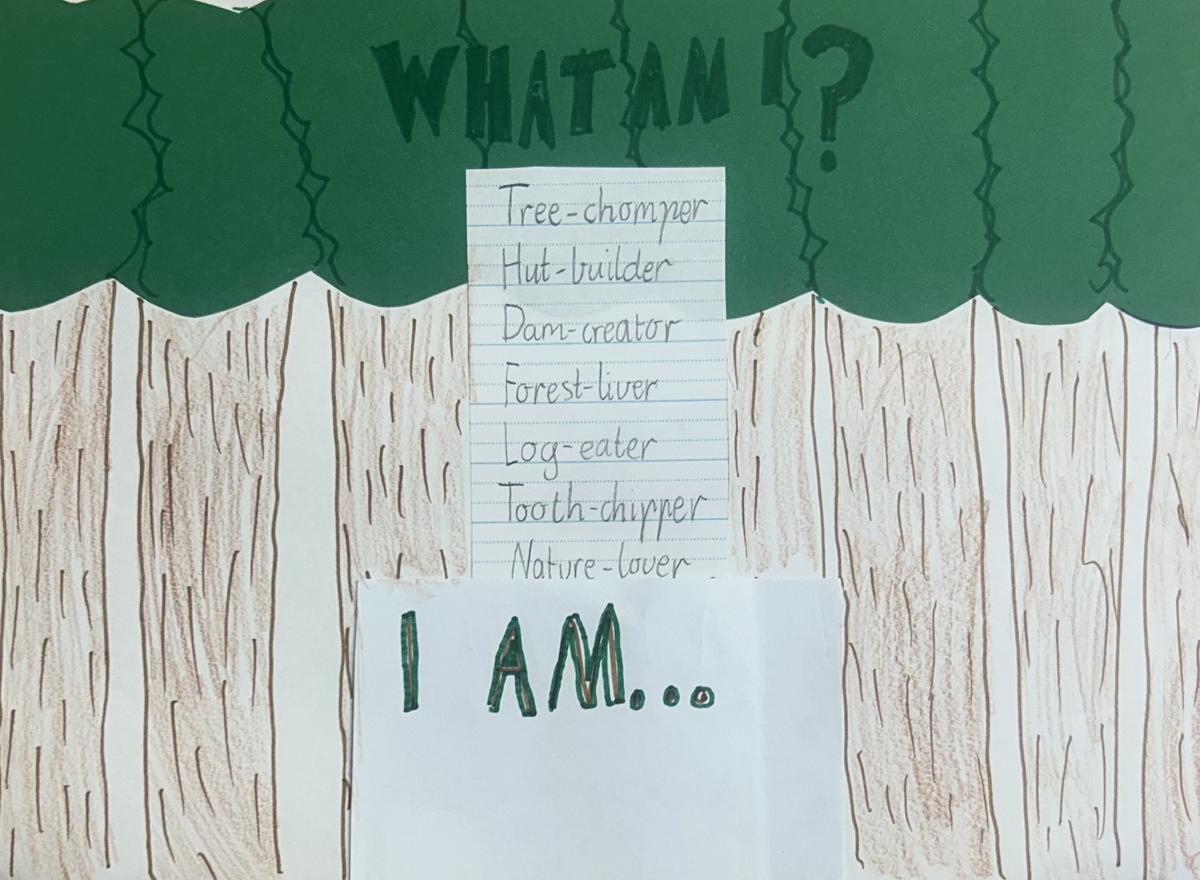 WHAT AM I?
Tree-chomper
Hut-builder
Dam-creator
Forest-liver
Log-eater
Tooth-chipper
Nature-lover
I AM...